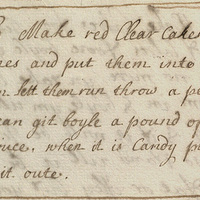 Make red Clear Cakes
nes and put them into
lett them run throw a pe
an git boyle a pound of
uce, when it is Candy pu
it oute.